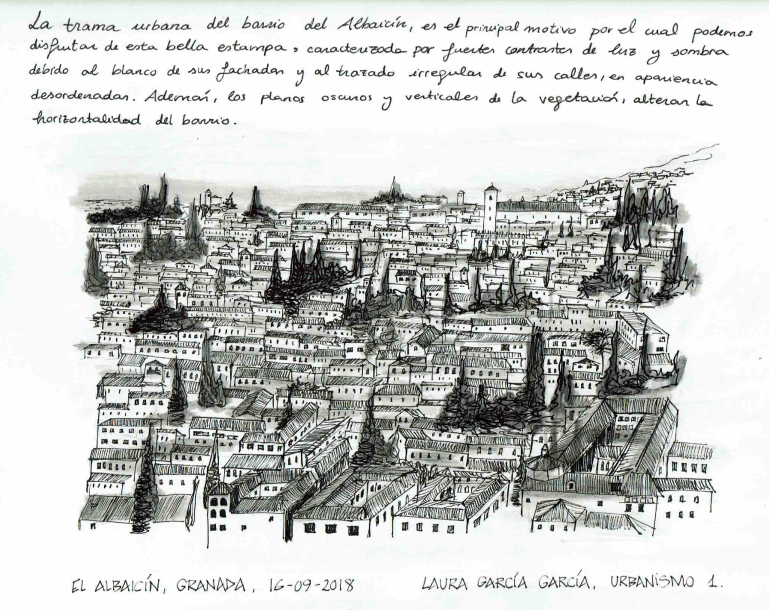 La trama urbana del barrio del Albaicín, es el principal motivo por el cual podemos
disfrutar de esta bella estampa, caracterizada por fuertes contrastes de luz y sombra
debido al blanco de sus fachadas y al trazado irregular de sus calles, en apariencia
desordenadas. Además, los planos oscuros y verticales de la vegetación, alteran la
horizontalidad del barrio.
EL ALBAICÍN, GRANADA, 16-09-2018
LAURA GARCÍA GARCÍA, URBANISMO 1.